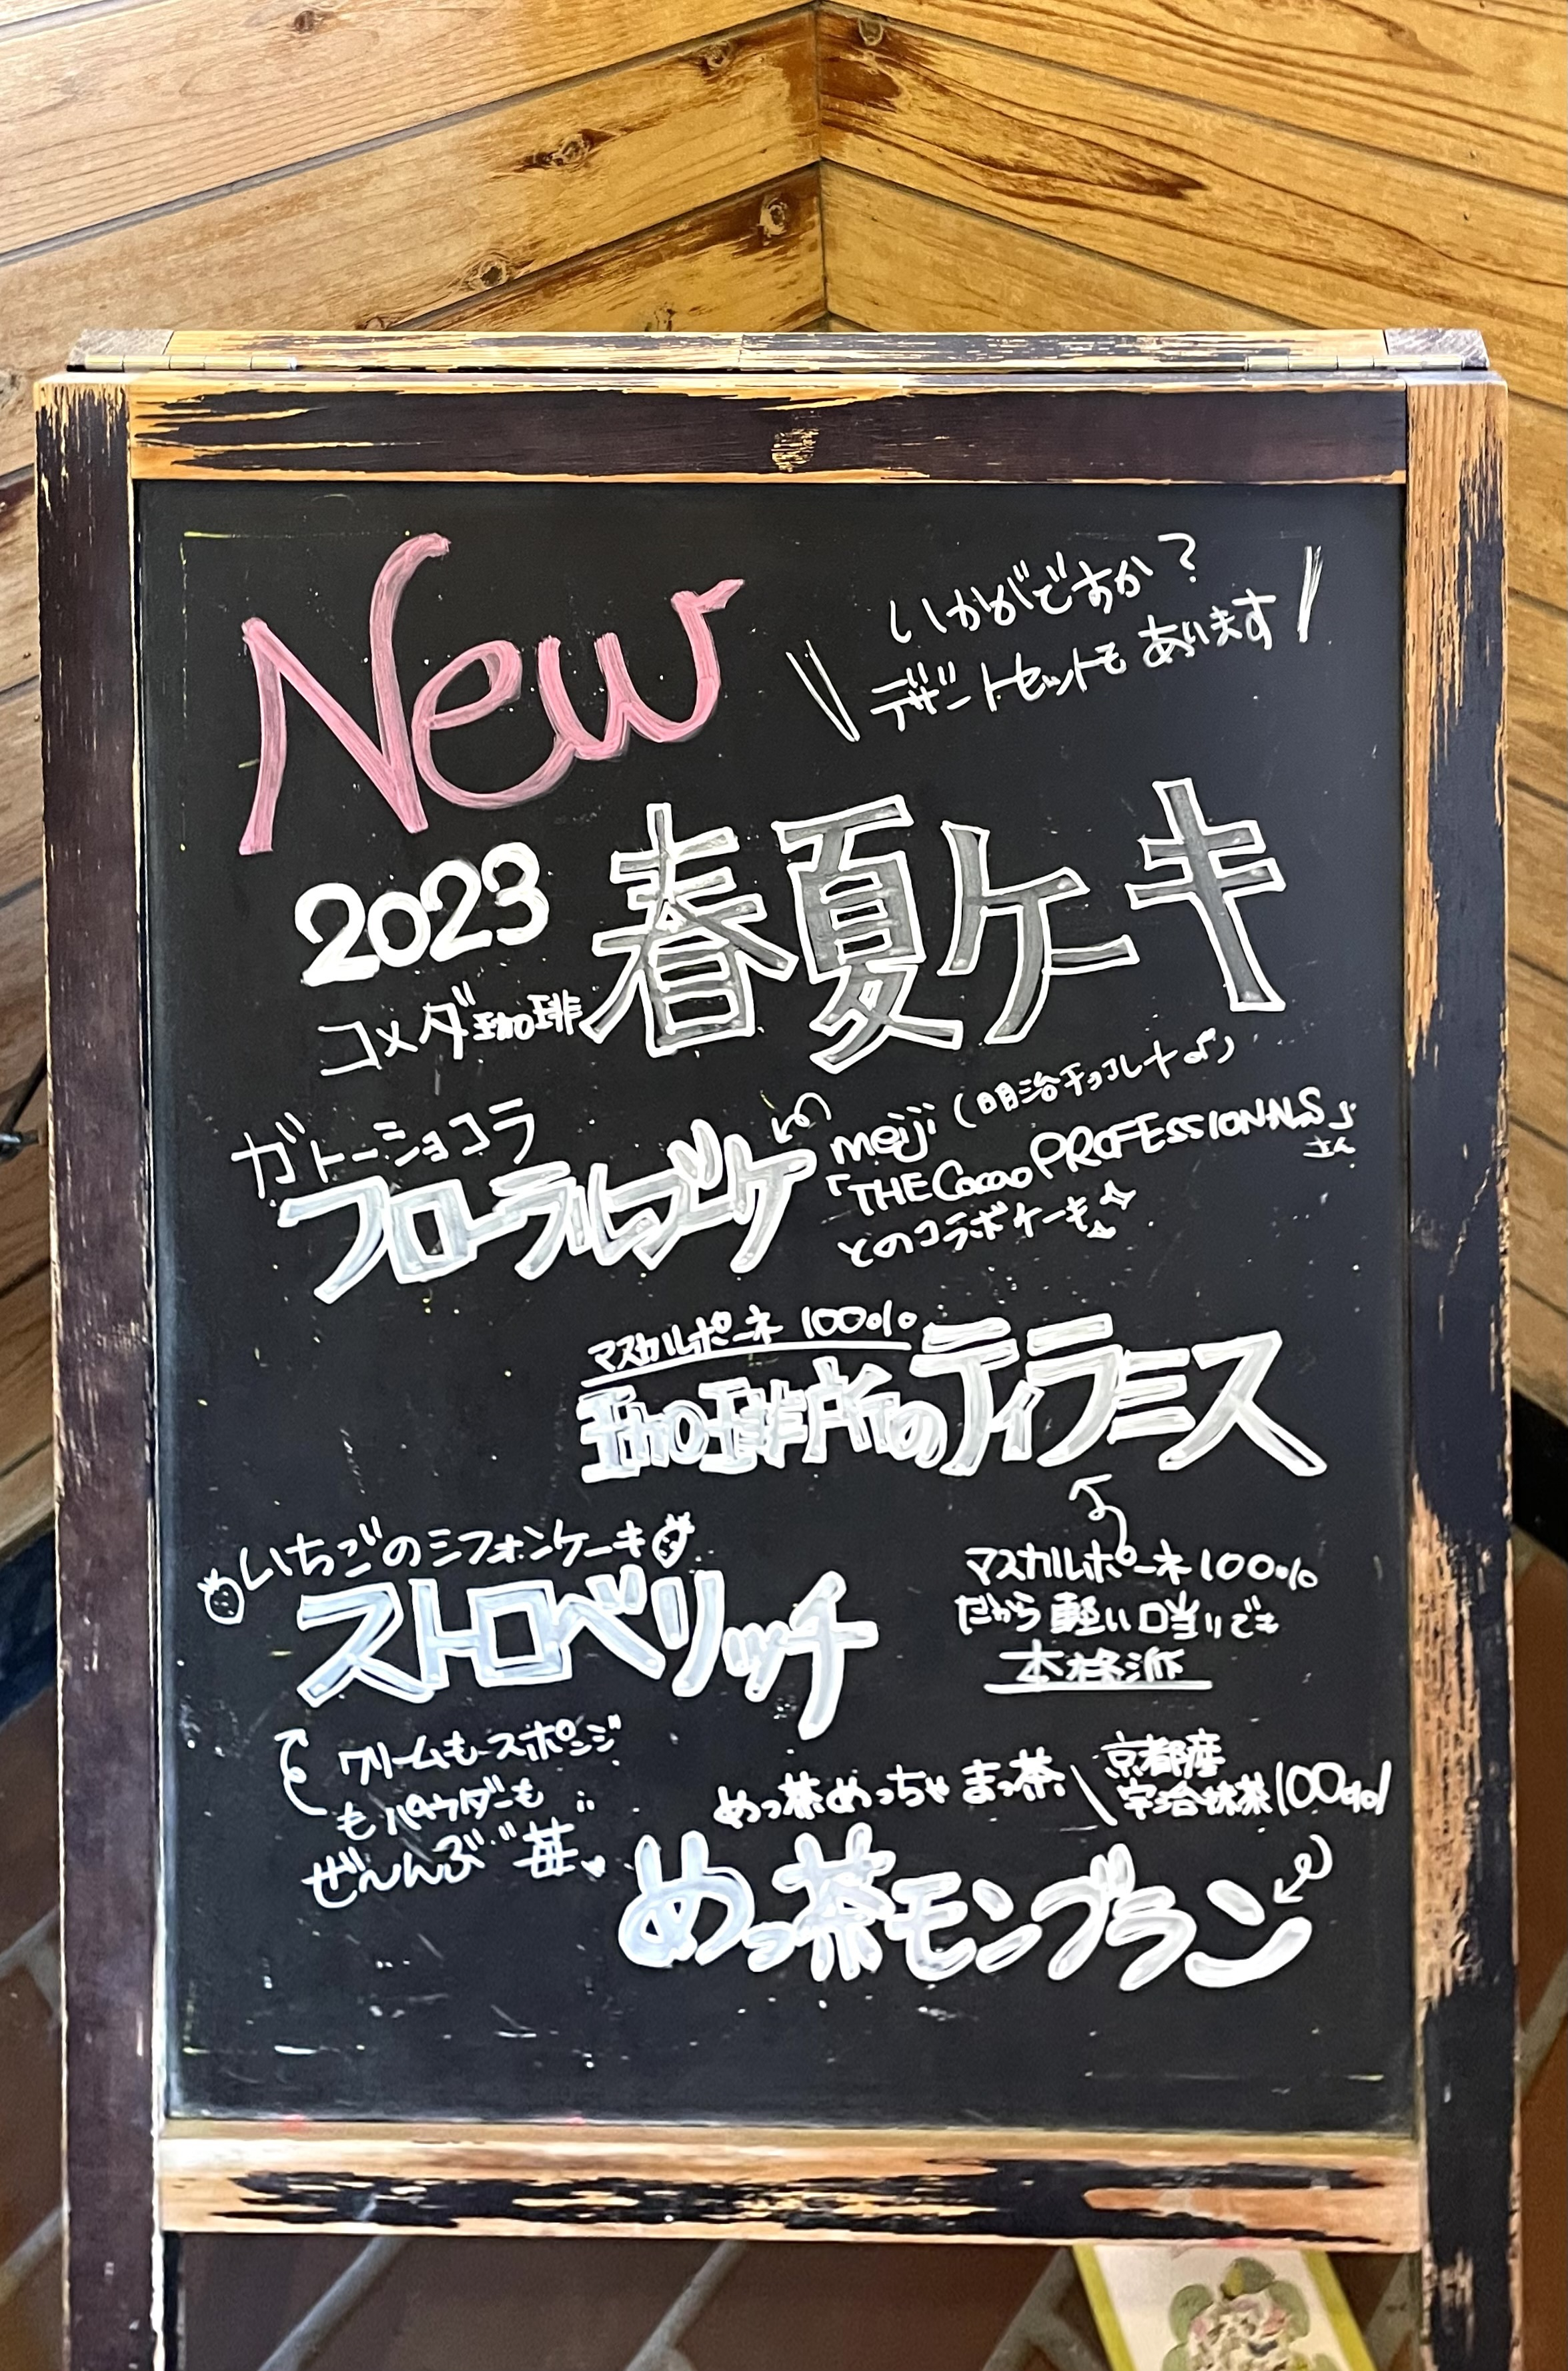 New
いかがですか?
デザートセットもあります
2023
コメダ珈琲
春夏ケーキ
ガトーショコラ
フローラルブーケ
meiji (明治チョコレート
「THE Cacao PROFESSIONNALS」さん
とのコラボケーキ
マスカルポーネ 100%
珈琲所のティラミス
マスカルポーネ100%
だから軽い口当りでも
本格派
いちごのシフォンケーキ
ストロベリッチ
クリームもスポンジ
もパウダーも
ぜんんぶ苺
めっ茶めっちゃまっ茶
京都産
宇治抹茶100%!
めっ茶モンブラン